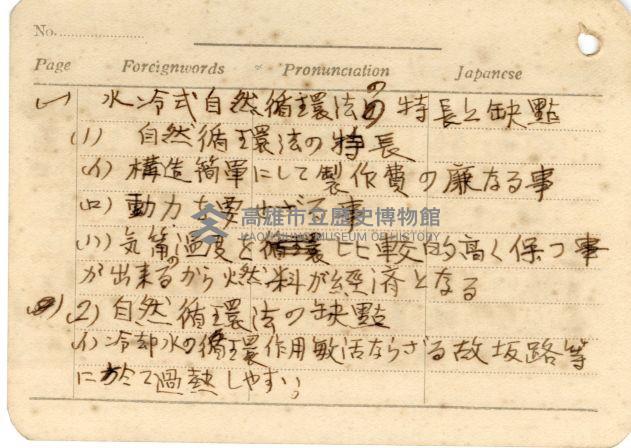 No.
Page Foreignwords Pronunciation Japanese
水冷式自然循環法の特長と缺點
(1) 自然循環法の特長
(イ) 構造簡單にして製作費の廉なる事
(ロ) 動力を要せざる事
(ハ) 気筩の温度を比較的高く保つ事
が出来るから燃料が經済となる
2) 自然循環法の缺點
(イ) 冷却水の循環作用敏活ならざる故坂路等
に於て過熱しやすい
高雄市立歷史博物館
KAOHSIUNG MUSEUM OF HISTORY